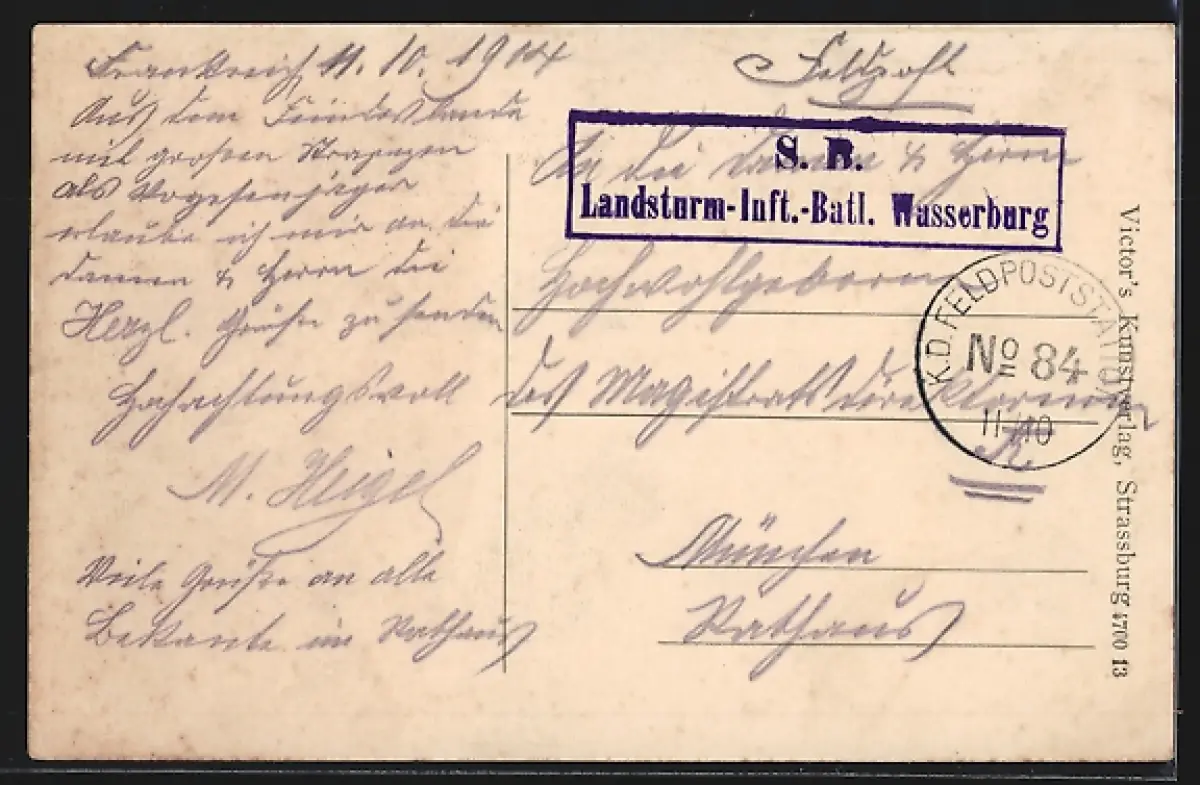 Frankreich, 11. 10. 1914
Aus dem Feindeslande
mit grossen Strapazen
als Vogesenjäger
erlaube ich mir an die
Damen & Herrn die
Herzl. Grüße zu senden
Hochachtungsvoll
M. Heigel
Viele Grüße an alle
Bekante im Rathaus
Feldpost
An die Damen & Herrn
S. B.
Landsturm-Inft.-Batl. Wasserburg
Hochwohlgeboren
des Magistrats
K.D. FELDPOSTSTATION
No 84
11/10
München
Rathaus
Victor's Kunstverlag, Strassburg 4700 13